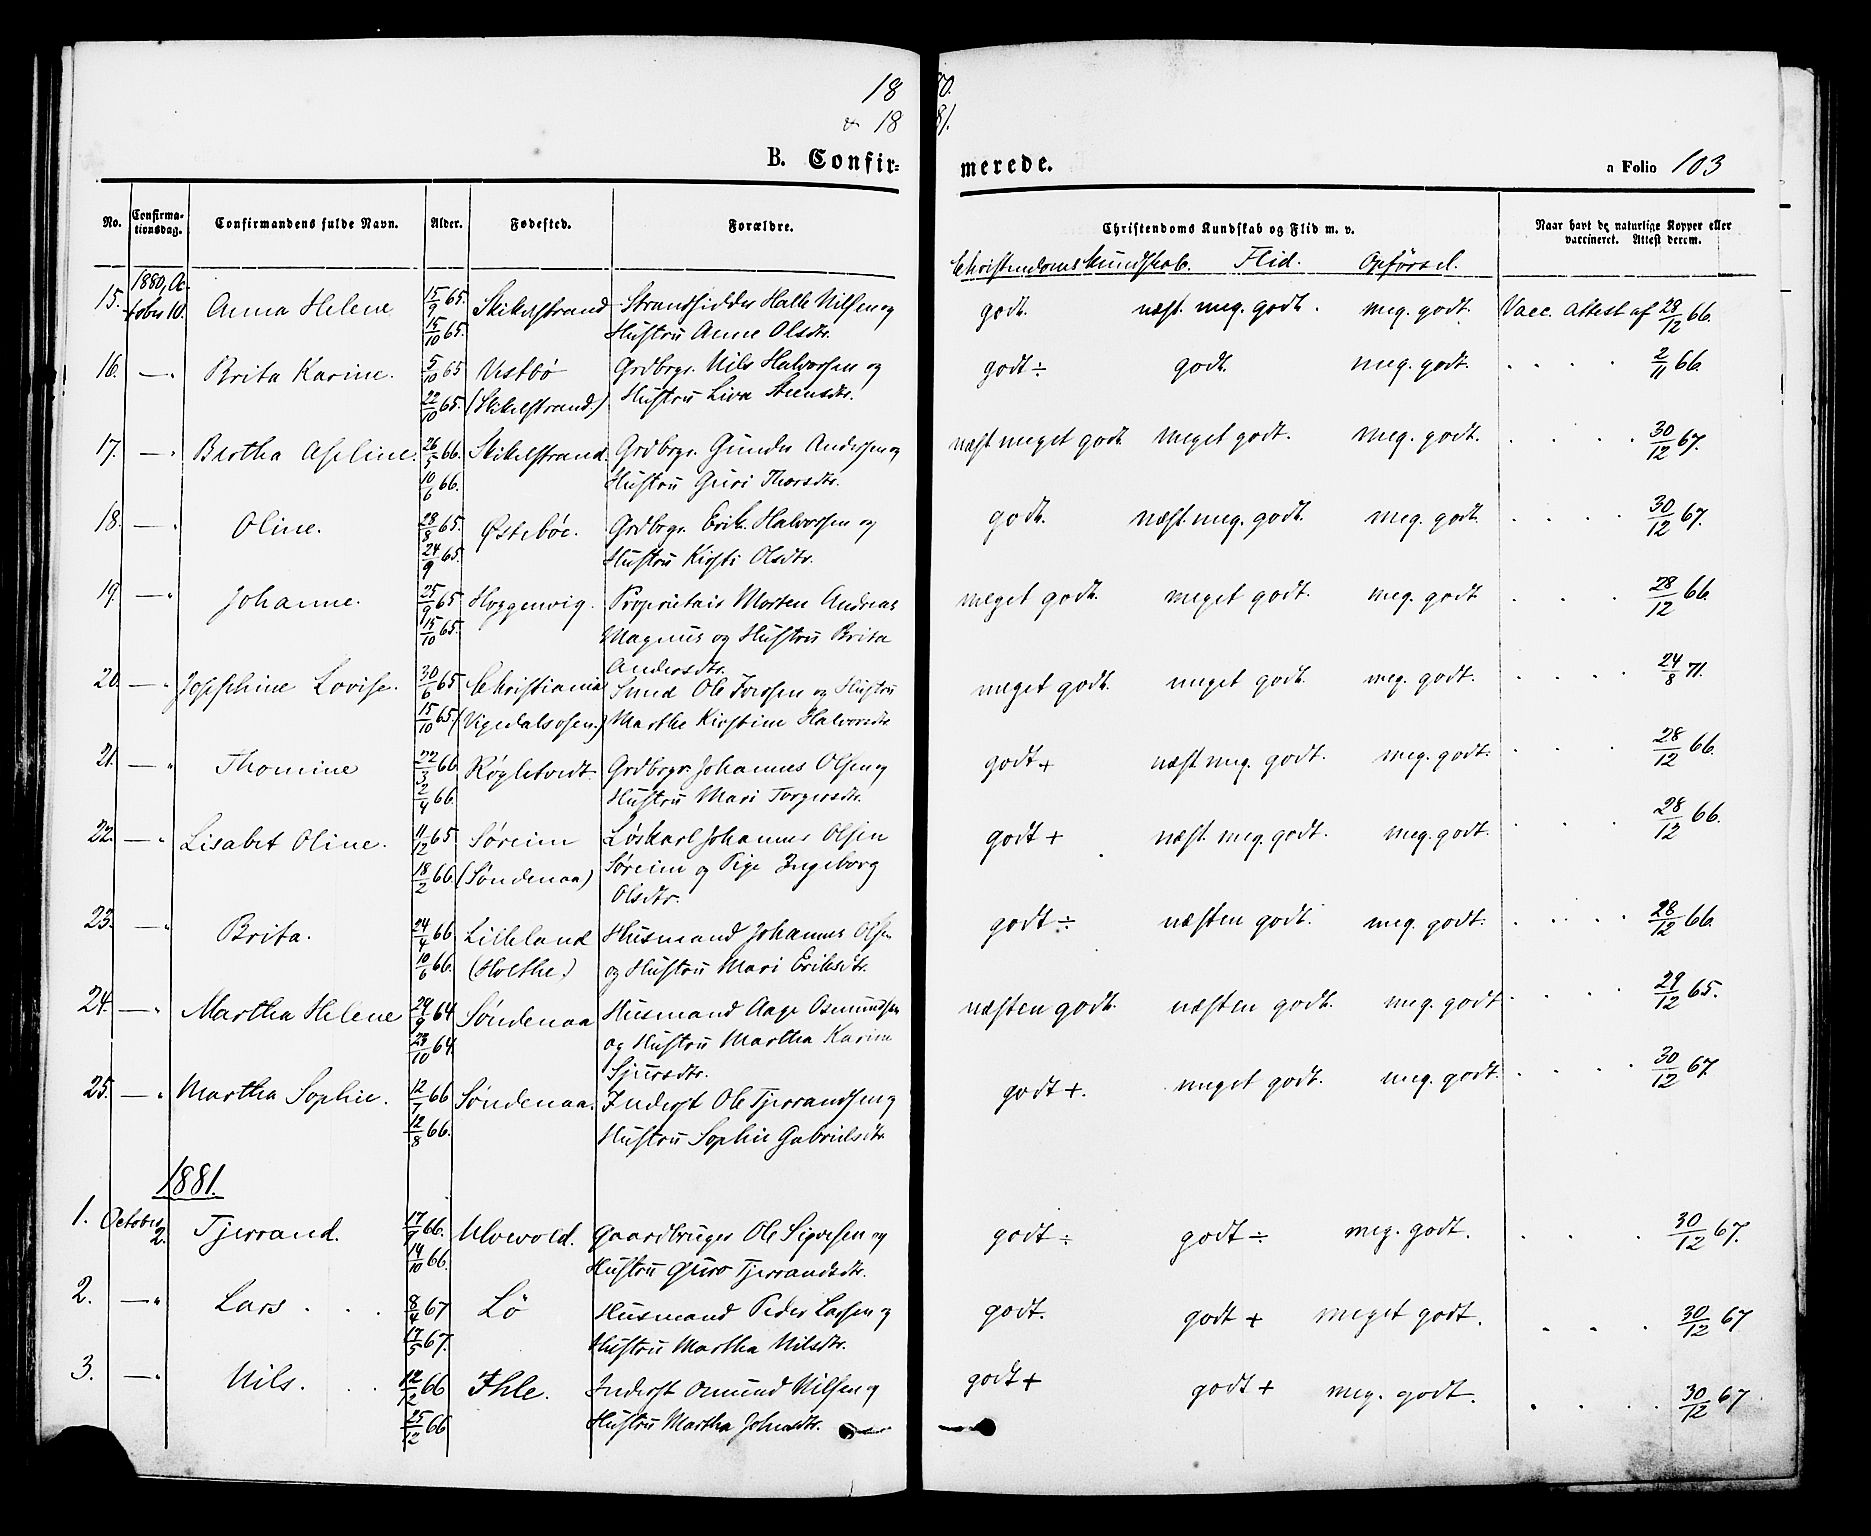 18 80.
& 18 81.
B. Confir= merede.
a Folio 103
No. Confirma-tionsdag. Confirmandens fulde Navn. Alder. Fødested. Forældre. Christendoms Kundskab og Flid m. v. Naar havt de naturlige Kopper eller vaccineret. Attest derom.
Christendomskundskab. Flid. Opførsel.
15. 1880, Oc-tober 10. Anna Helene 15/9 65. Skikelstrand Strandsidder Halle Nilsen og godt. næst. meg. godt. meg. godt. Vacc. Attest af 28/12 66.
15/10 65. Hustru Anne Olsdtr.
16. —„ Brita Karine. 5/10 65 Ustbö Grdbrgr. Nils Halvorsen og godt ÷ godt. meg. godt. . . . . 2/11 66.
22/10 65. (Skikelstrand) Hustru Liva Steensdtr.
17. —„ Bertha Aseline. 26/5 66. Skikelstrand. Grdbrgr. Gunder Andersen og næst meget godt meget godt. meg. godt. . . . . 30/12 67.
10/6 66. Hustru Guri Thorsdtr.
18. —„ Oline. 28/8 65. Østebøe. Grdbrgr. Erik Halvorsen og godt. næst. meg. godt. meg. godt. . . . . 30/12 67.
24/9 65. Hustru Kirsti Olsdtr.
19. —„ Johanne. 25/9 65 Hoggenvig. Proprietair Morten Andreas meget godt. meget godt. meg. godt . . . 28/12 66.
15/10 65. Magnus og Hustru Brita
Andersdtr.
20. —„ Josephine Lovise. 30/6 65 Christiania Smed Ole Iversen og Hustru meget godt. meget godt. meg. godt. . . . . 24/8 71.
15/10 65 (Vigedalsosen.) Marthe Kirstine Halvorsdtr
21. —„ Thomine 22/3 66. Røgletvedt. Grdbrgr. Johannes Olsen og godt + næst meg. godt. meg. godt. . . . 28/12 66.
2/4 66. Hustru Mari Torgersdtr.
22. —„ Lisabet Oline. 11/12 65. Søreim Løskarl Johannes Olsen godt + næst. meg. godt. meg. godt. . . . 28/12 66.
18/2 66. (Søndenaa) Søreim og Pige Ingeborg
Olsdtr.
23. —„ Brita. 24/4 66. Lilleland Husmand Johannes Olsen godt ÷ næsten godt. meg. godt. . . . . 28/12 66.
10/6 66. (Holthe.) og Hustru Mari Eriksdtr.
24. —„ Martha Helene 29/9 64 Søndenaa Husmand Aage Osmundsen næsten godt. næsten godt. meg. godt . . . . 29/12 65.
23/10 64. og Hustru Martha Karine
Sjursdtr.
25. —„ Martha Sophie. 12/7 66 Søndenaa. Inderst Ole Tjerrandsen og godt +. meget godt. meg. godt. . . . . 30/12 67.
12/8 66. Hustru Sophie Gabrielsdtr
1881.
1. October 2. Tjerrand. 17/9 66. Ulvevold. Gaardbruger Ole Sigvesen og godt ÷ godt ÷ meg. godt. . . . 30/12 67.
14/10 66. Hustru Guro Tjerrandsdtr.
2. —„ Lars . . . 8/4 67 Lö Husmand Peder Larsen og godt. godt + meget godt. . . . 30/12 67
17/5 67. Hustru Martha Nilsdtr.
3. —„ Nils. . . 12/12 66 Ihle. Inderst Omund Nilsen og godt + godt + meg. godt. . . . . 30/12 67
25/12 66 Hustru Martha Johnsdtr.